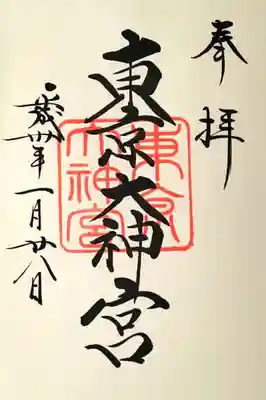 奉拝
東京大神宮
東京
大神宮
平成卅年一月廿八日